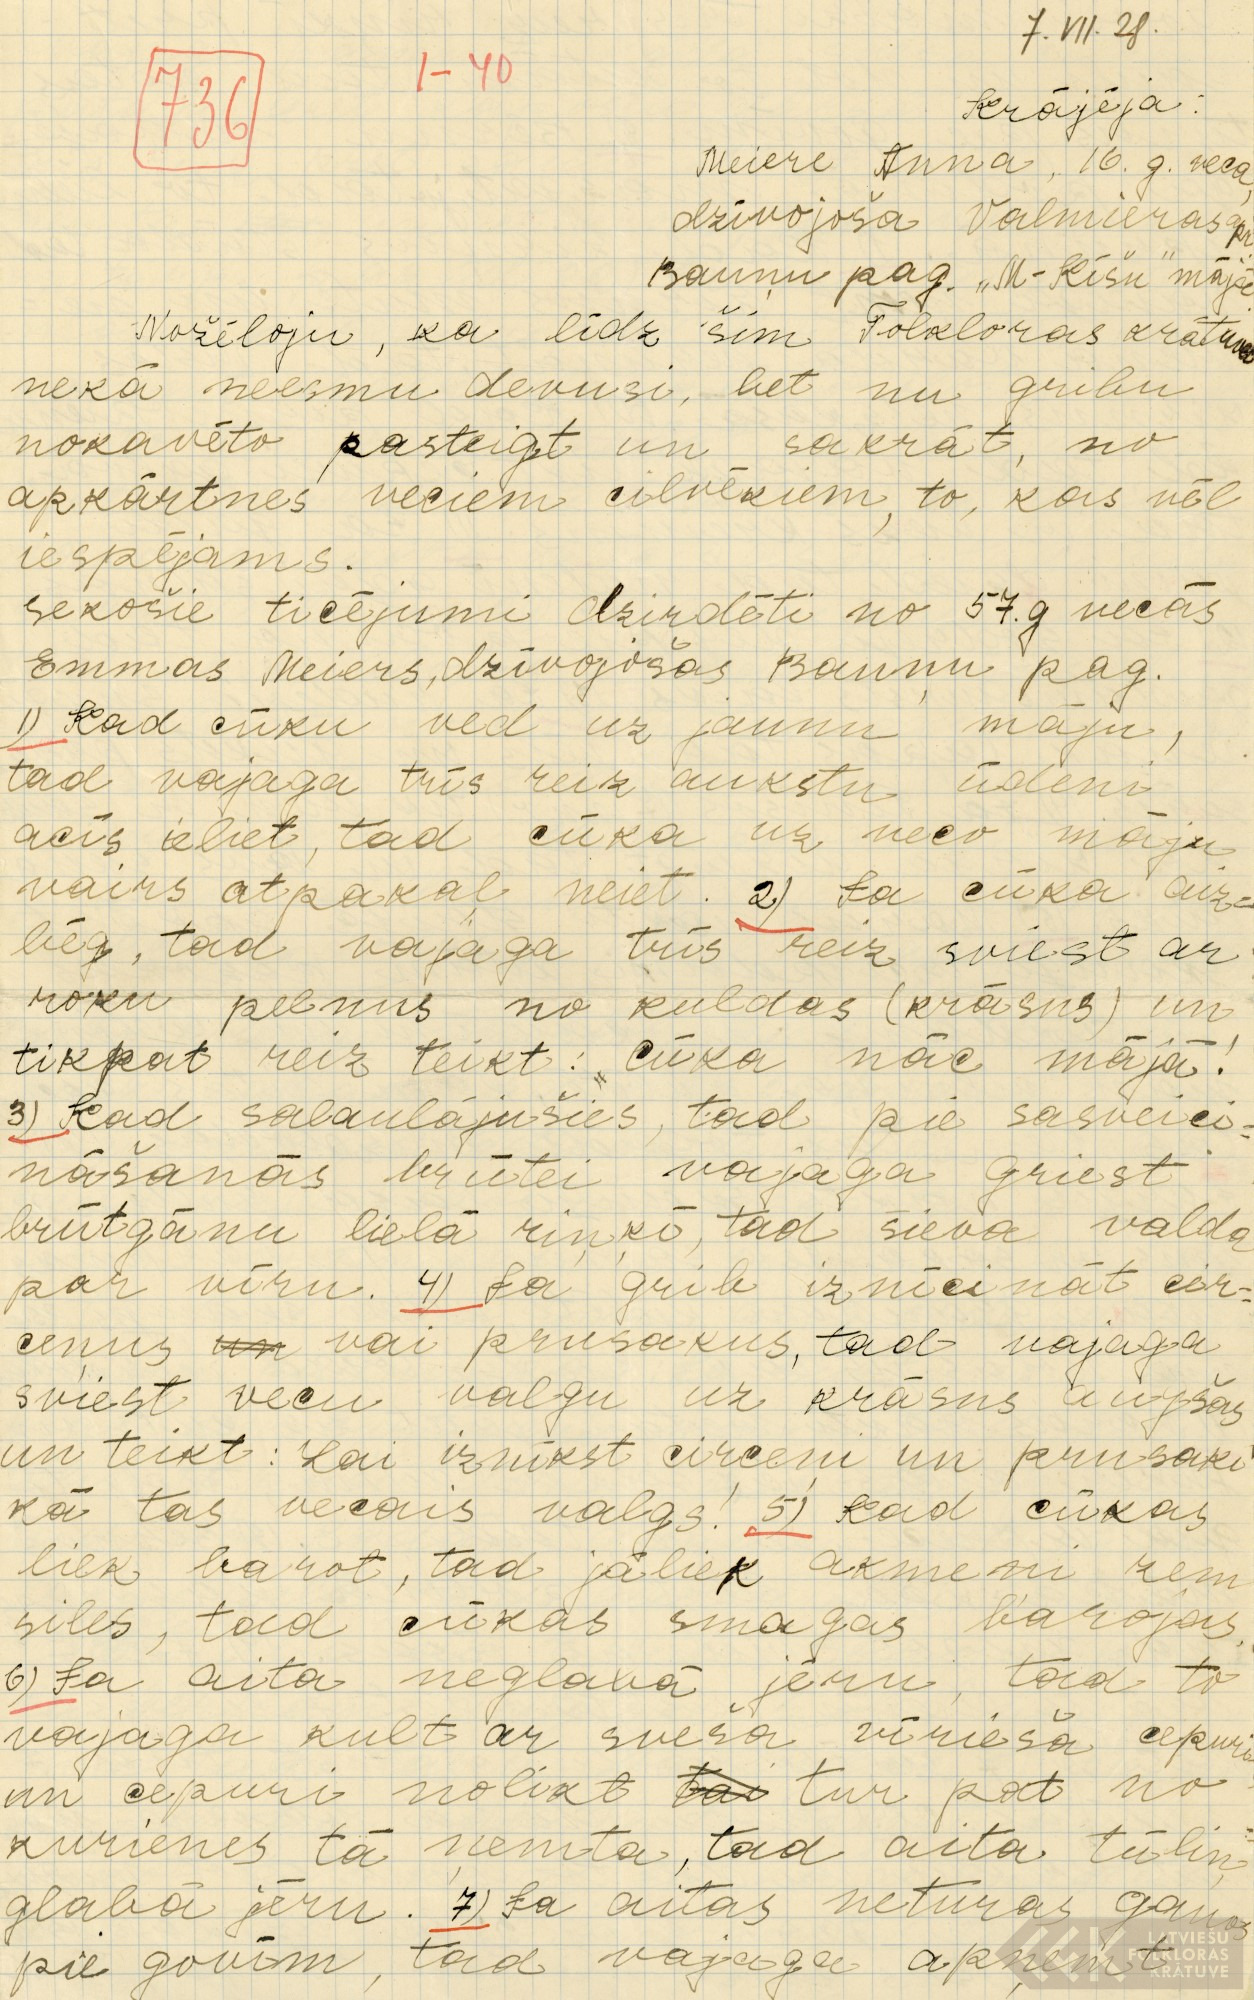 7. VII. 28.
736
1-40
Krājēja:
Meiere Anna, 16. g. veca,
dzīvojoša Valmieras apr
Bauņu pag. „M-Ķīšu" mājā
Nožēloju, ka līdz šim Folkloras krātuvei
nekā neesmu devusi, bet nu gribu
nokavēto pasteigt un sakrāt, no
apkārtnes veciem cilvēkiem, to, kas vēl
iespējams.
Sekošie ticējumi dzirdēti no 57. g vecās
Emmas Meiers, dzīvojošas Bauņu pag.
1) Kad cūku ved uz jaunu māju,
tad vajaga trīs reiz aukstu ūdeni
acīs ieliet, tad cūka uz veco māju
vairs atpakaļ neiet. 2) Ja cūka aiz=
bēg, tad vajaga trīs reiz sviest ar
roku pelnus no kuldas (krāsns) un
tikpat reiz teikt: „Cūka nāc mājā!"
3) Kad salaulājušies, tad pie sasveici=
nāšanās brūtei vajaga griest
brūtgānu lielā riņķī, tad sieva valda
par vīru. 4) Ja grib iznīcināt cir=
ceņus un vai prusakus, tad vajaga
sviest vecu valgu uz krāsns augšas
un teikt: Lai iznīkst circeņi un prusaki
kā tas vecais valgs! 5) Kad cūkas
liek barot, tad jāliek akmeni zem
siles, tad cūkas smagas barojas.
6) Ja aita neglabā jēru, tad to
vajaga kult ar sveša vīrieša cepuri
un cepuri nolikt tai tur pat no
kurienes tā ņemta, tad aita tūliņ
glabā jēru. 7) Ja aitas neturas ganos
pie govīm, tad vajaga apņemt
LATVIEŠU
FOLKLORAS
KRĀTUVE